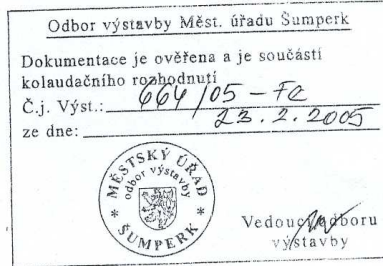 Odbor výstavby Měst. úřadu Šumperk
Dokumentace je ověřena a je součástí
kolaudačního rozhodnutí
Č.j. Výst.: 664/05 - Fe
ze dne: 23.2.2005
MĚSTSKÝ ÚŘAD
odbor výstavby
* ŠUMPERK *
Vedoucí odboru
výstavby